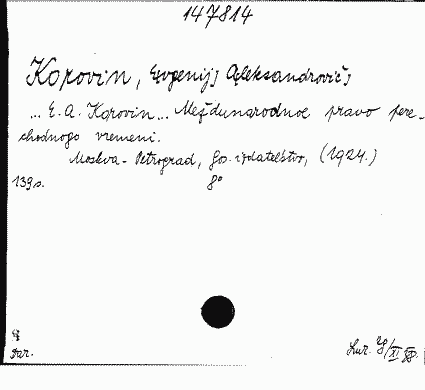 147814
Korovin, Evgenij Aleksandrovič
... E. A. Korovin... Meždunarodnoe pravo pere-
chodnogo vremeni.
Moskva-Petrograd, Gos. izdatel'stvo, (1924.)
139 s. 8°
Dar.